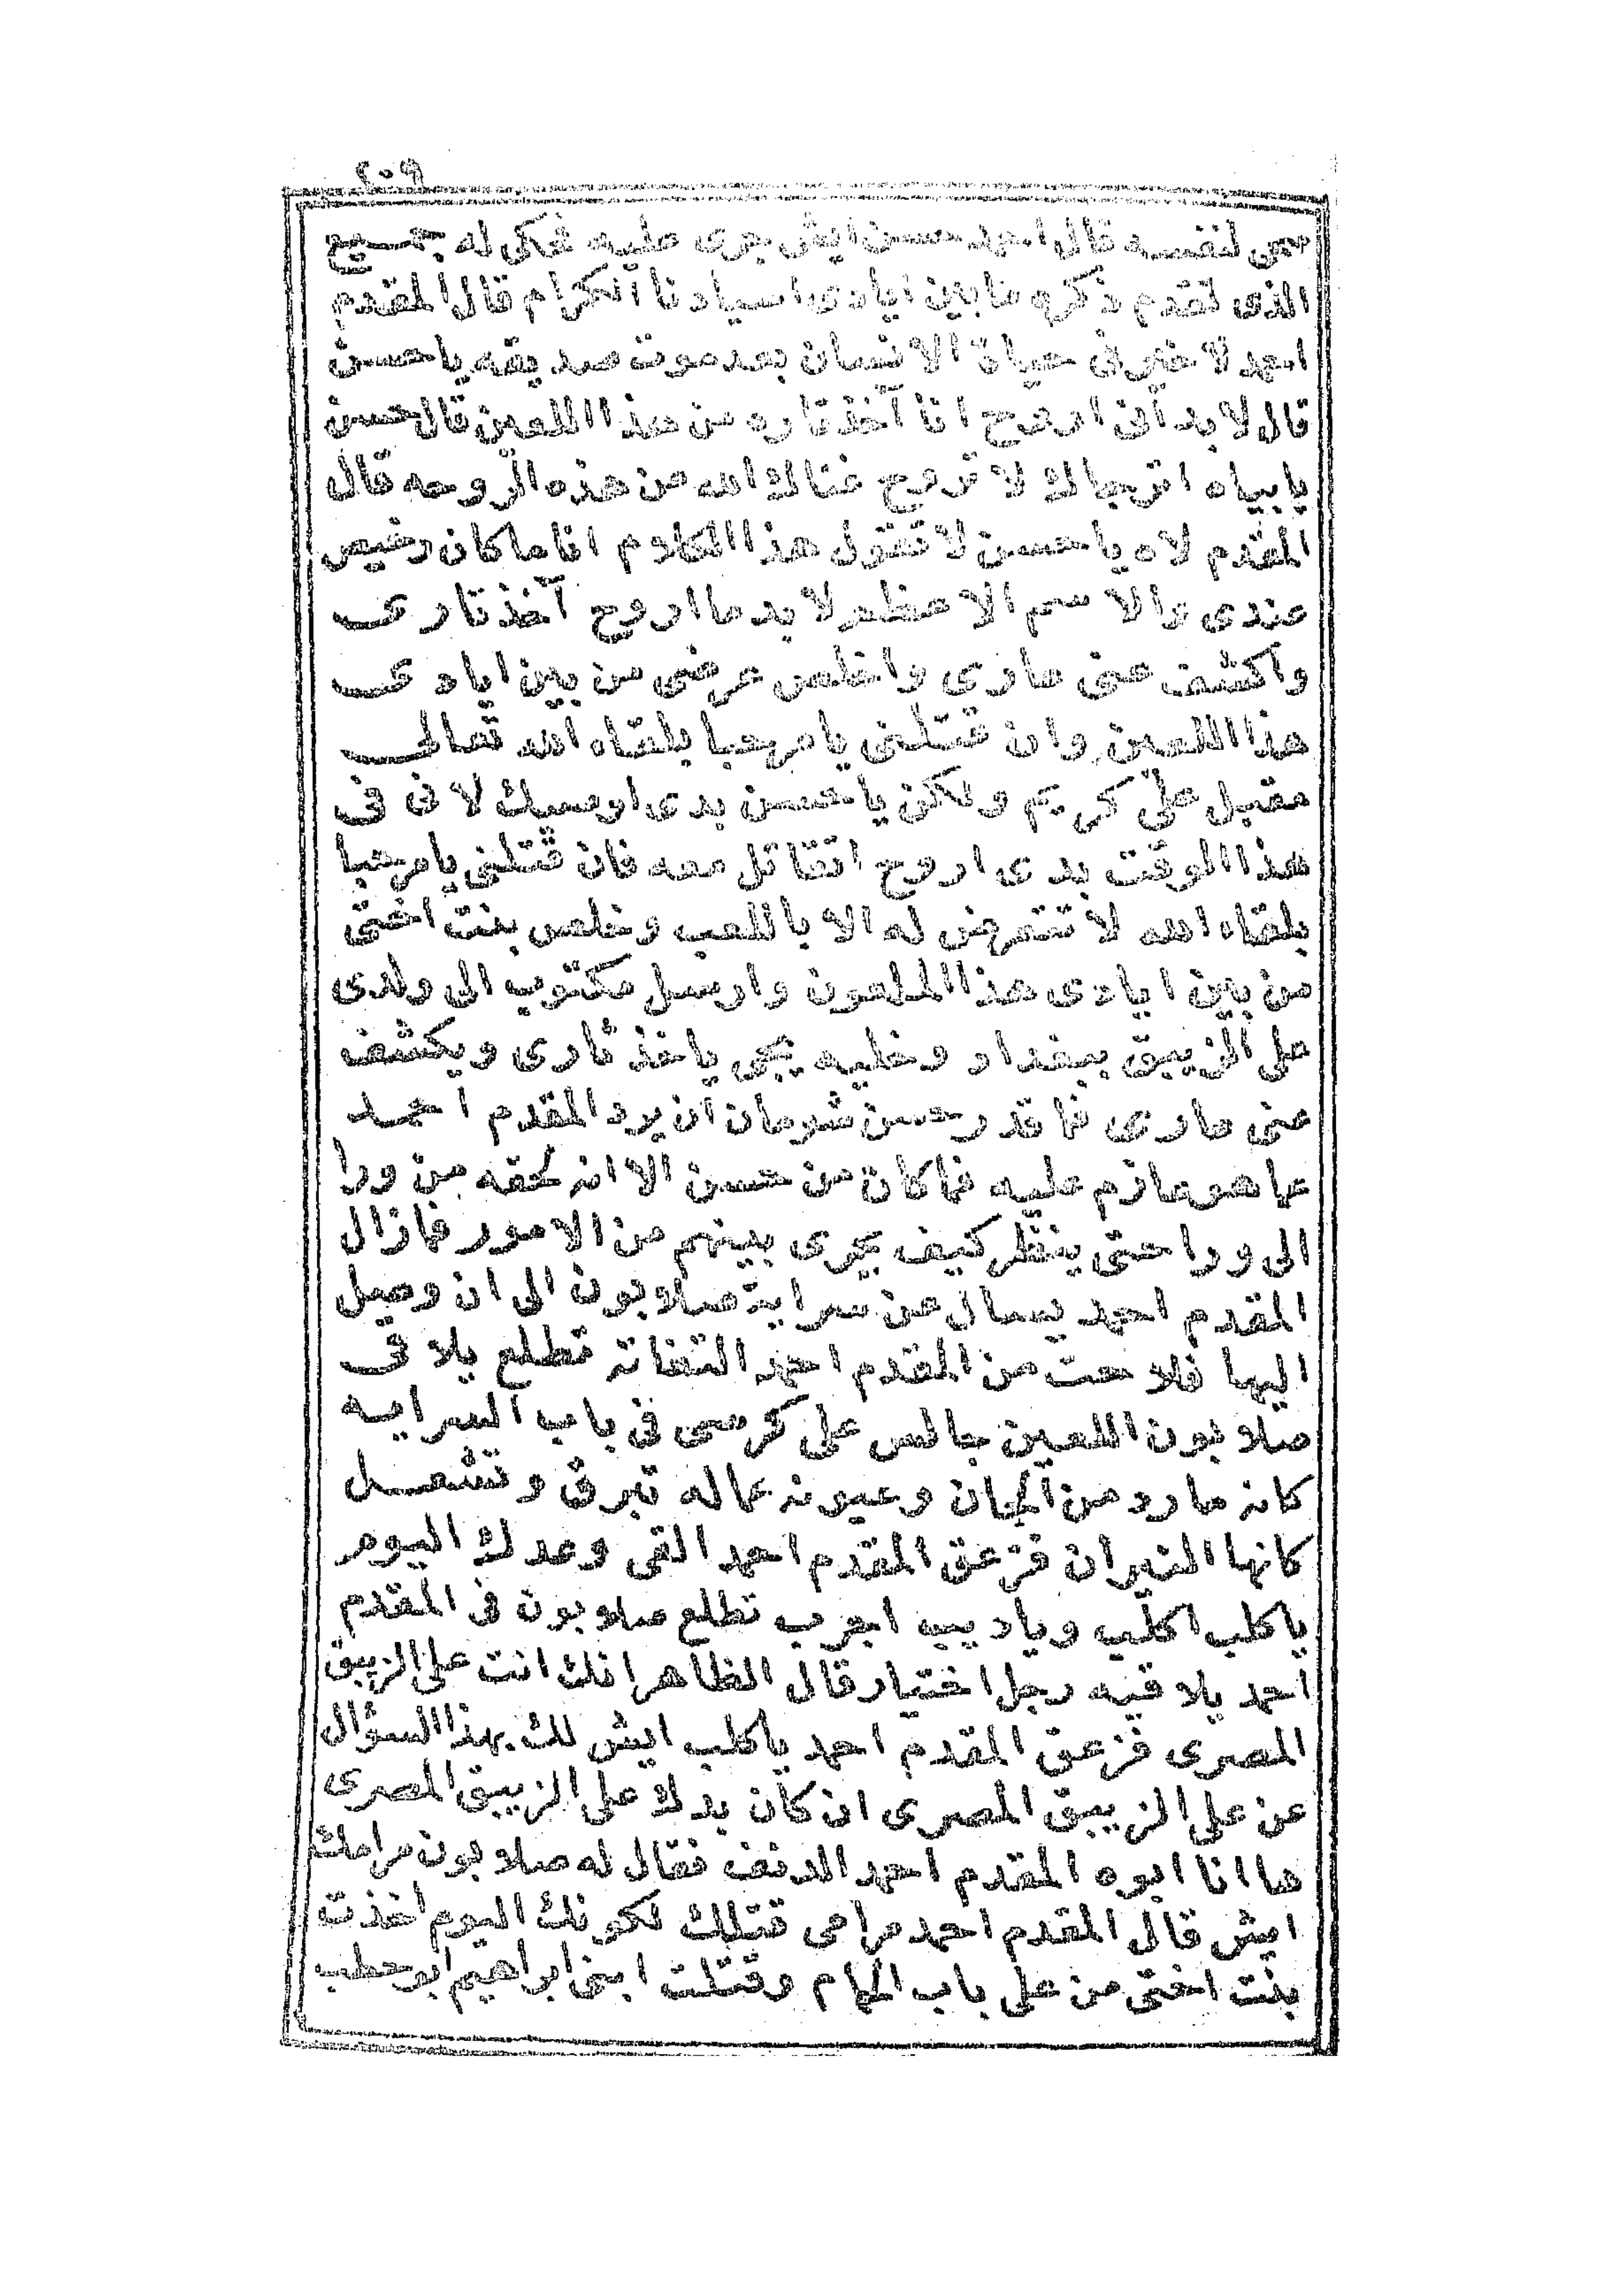 لنفسه قال احمد حسن ايش جرى عليه فحكى له جميع
الذى تقدم ذكره ما بين ايادى اسيادنا الكرام قال المقدم
احمد لا خير فى حياة الانسان بعد موت صديقه يا حسن
قال لا بد انى اروح انا آخذ تاره من هذا اللعين قال حسن
يا بياه اترجاك لا تروح غناك الله من هذه الروحه قال
المقدم لاه يا حسن لا تقول هذا الكلام انا ما كان رخيص
عندى والاسم الاعظم لا بد ما اروح آخذ تارى
واكشف عنى عارى واخلص عرضى من بين ايادى
هذا اللعين وان قتلنى يا مرحبا بلقاء الله تعالى
مقبل علىّ كريم ولكن يا حسن بدى اوصيك لانى فى
هذا الوقت بدى اروح اتقاتل معه فان قتلنى يا مرحبا
بلقاء الله لا تتعرض له الا باللعب وخلص بنت اختى
من بين ايادى هذا الملعون وارسل مكتوب الى ولدى
على الزيبق ببغداد وخليه يجى ياخذ ثارى ويكشف
عنى عارى فما قدر حسن شومان ان يرد المقدم احمد
عما هو عازم عليه فما كان من حسن الا انه لحقه من ورا
الى ورا حتى ينظر كيف يجرى بينهم من الامور فما زال
المقدم احمد يسال عن سراية صلابون الى ان وصل
اليها فلاحت من المقدم احمد التفاته تطلع يلاقى
صلابون اللعين جالس على كرسى فى باب السرايه
كانه مارد من الجان وعيونه عماله تبرق وتشعل
كانها النيران فزعق المقدم احمد القى وعدك اليوم
يا كلب اكلب ويا ديب اجرب تطلع صلابون فى المقدم
احمد يلاقيه رجل اختيار قال الظاهر انك انت على الزيبق
المصرى فزعق المقدم احمد يا كلب ايش لك بهذا السؤال
عن على الزيبق المصرى ان كان بدك على الزيبق المصرى
ها انا ابوه المقدم احمد الدنف فقال له صلابون مرامك
ايش قال المقدم احمد مرامى قتلك لكونك اليوم اخذت
بنت اختى من على باب الحمام وقتلت ابنى ابراهيم ابو حطب